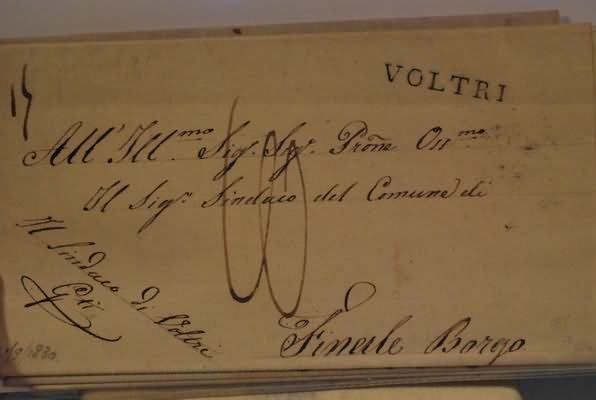 VOLTRI
15
All' Ill.mo Sig.r Sig.r Prõne Oss.mo
Il Sig.r Sindaco del Comune di
Finale Borgo
Il Sindaco di Voltri
1830